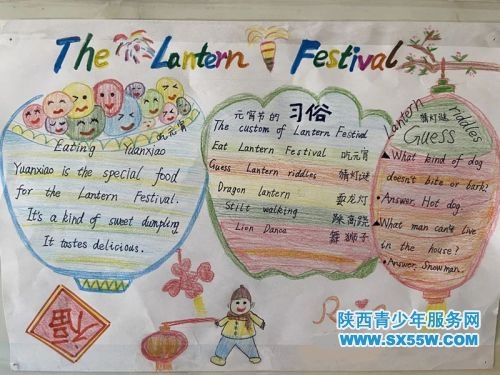 The Lantern Festival
Eating Yuanxiao 吃元宵
Yuanxiao is the special food
for the Lantern Festival.
It's a kind of sweet dumpling
It tastes delicious.
元宵节的习俗
The custom of Lantern Festival
Eat Lantern Festival 吃元宵
Guess Lantern riddles 猜灯谜
Dragon lantern 耍龙灯
Stilt walking 踩高跷
Lion Dance 舞狮子
Lantern riddles
猜灯谜
Guess
What kind of dog
doesn't bite or bark?
Answer, Hot dog.
What man can't live
in the house?
Answer, Snowman.
福
陕西青少年服务网
www.sx55w.com